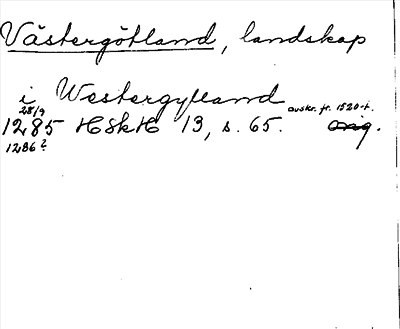 Västergötland, landskap
i Westergylland
28/9 avskr. fr. 1520-t.
1285 HSkH 13, s. 65. orig.
1286?